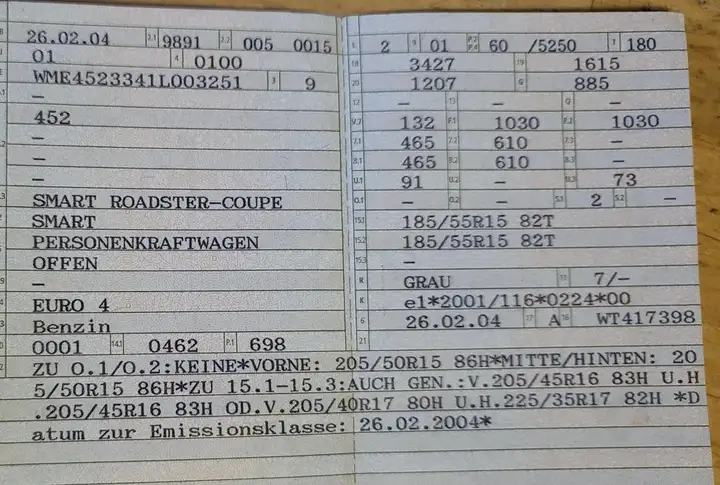 26.02.04 2.1 9891 2.2 005 0015
01 4 0100
WME4523341L003251 3 9
–
452
–
–
–
SMART ROADSTER-COUPE
SMART
PERSONENKRAFTWAGEN
OFFEN
–
EURO 4
Benzin
0001 14.1 0462 P.1 698
L 2 9 01 P.2 P.4 60 /5250 T 180
18 3427 19 1615
20 1207 G 885
12 – 13 – Q –
V.7 132 F.1 1030 F.2 1030
7.1 465 7.2 610 7.3 –
8.1 465 8.2 610 8.3 –
U.1 91 U.2 – U.3 73
O.1 – O.2 – S.1 2 S.2 –
15.1 185/55R15 82T
15.2 185/55R15 82T
15.3 –
R GRAU 11 7/–
K e1*2001/116*0224*00
6 26.02.04 17 A 16 WT417398
21
ZU O.1/O.2:KEINE*VORNE: 205/50R15 86H*MITTE/HINTEN: 20
5/50R15 86H*ZU 15.1-15.3:AUCH GEN.:V.205/45R16 83H U.H
.205/45R16 83H OD.V.205/40R17 80H U.H.225/35R17 82H *D
atum zur Emissionsklasse: 26.02.2004*